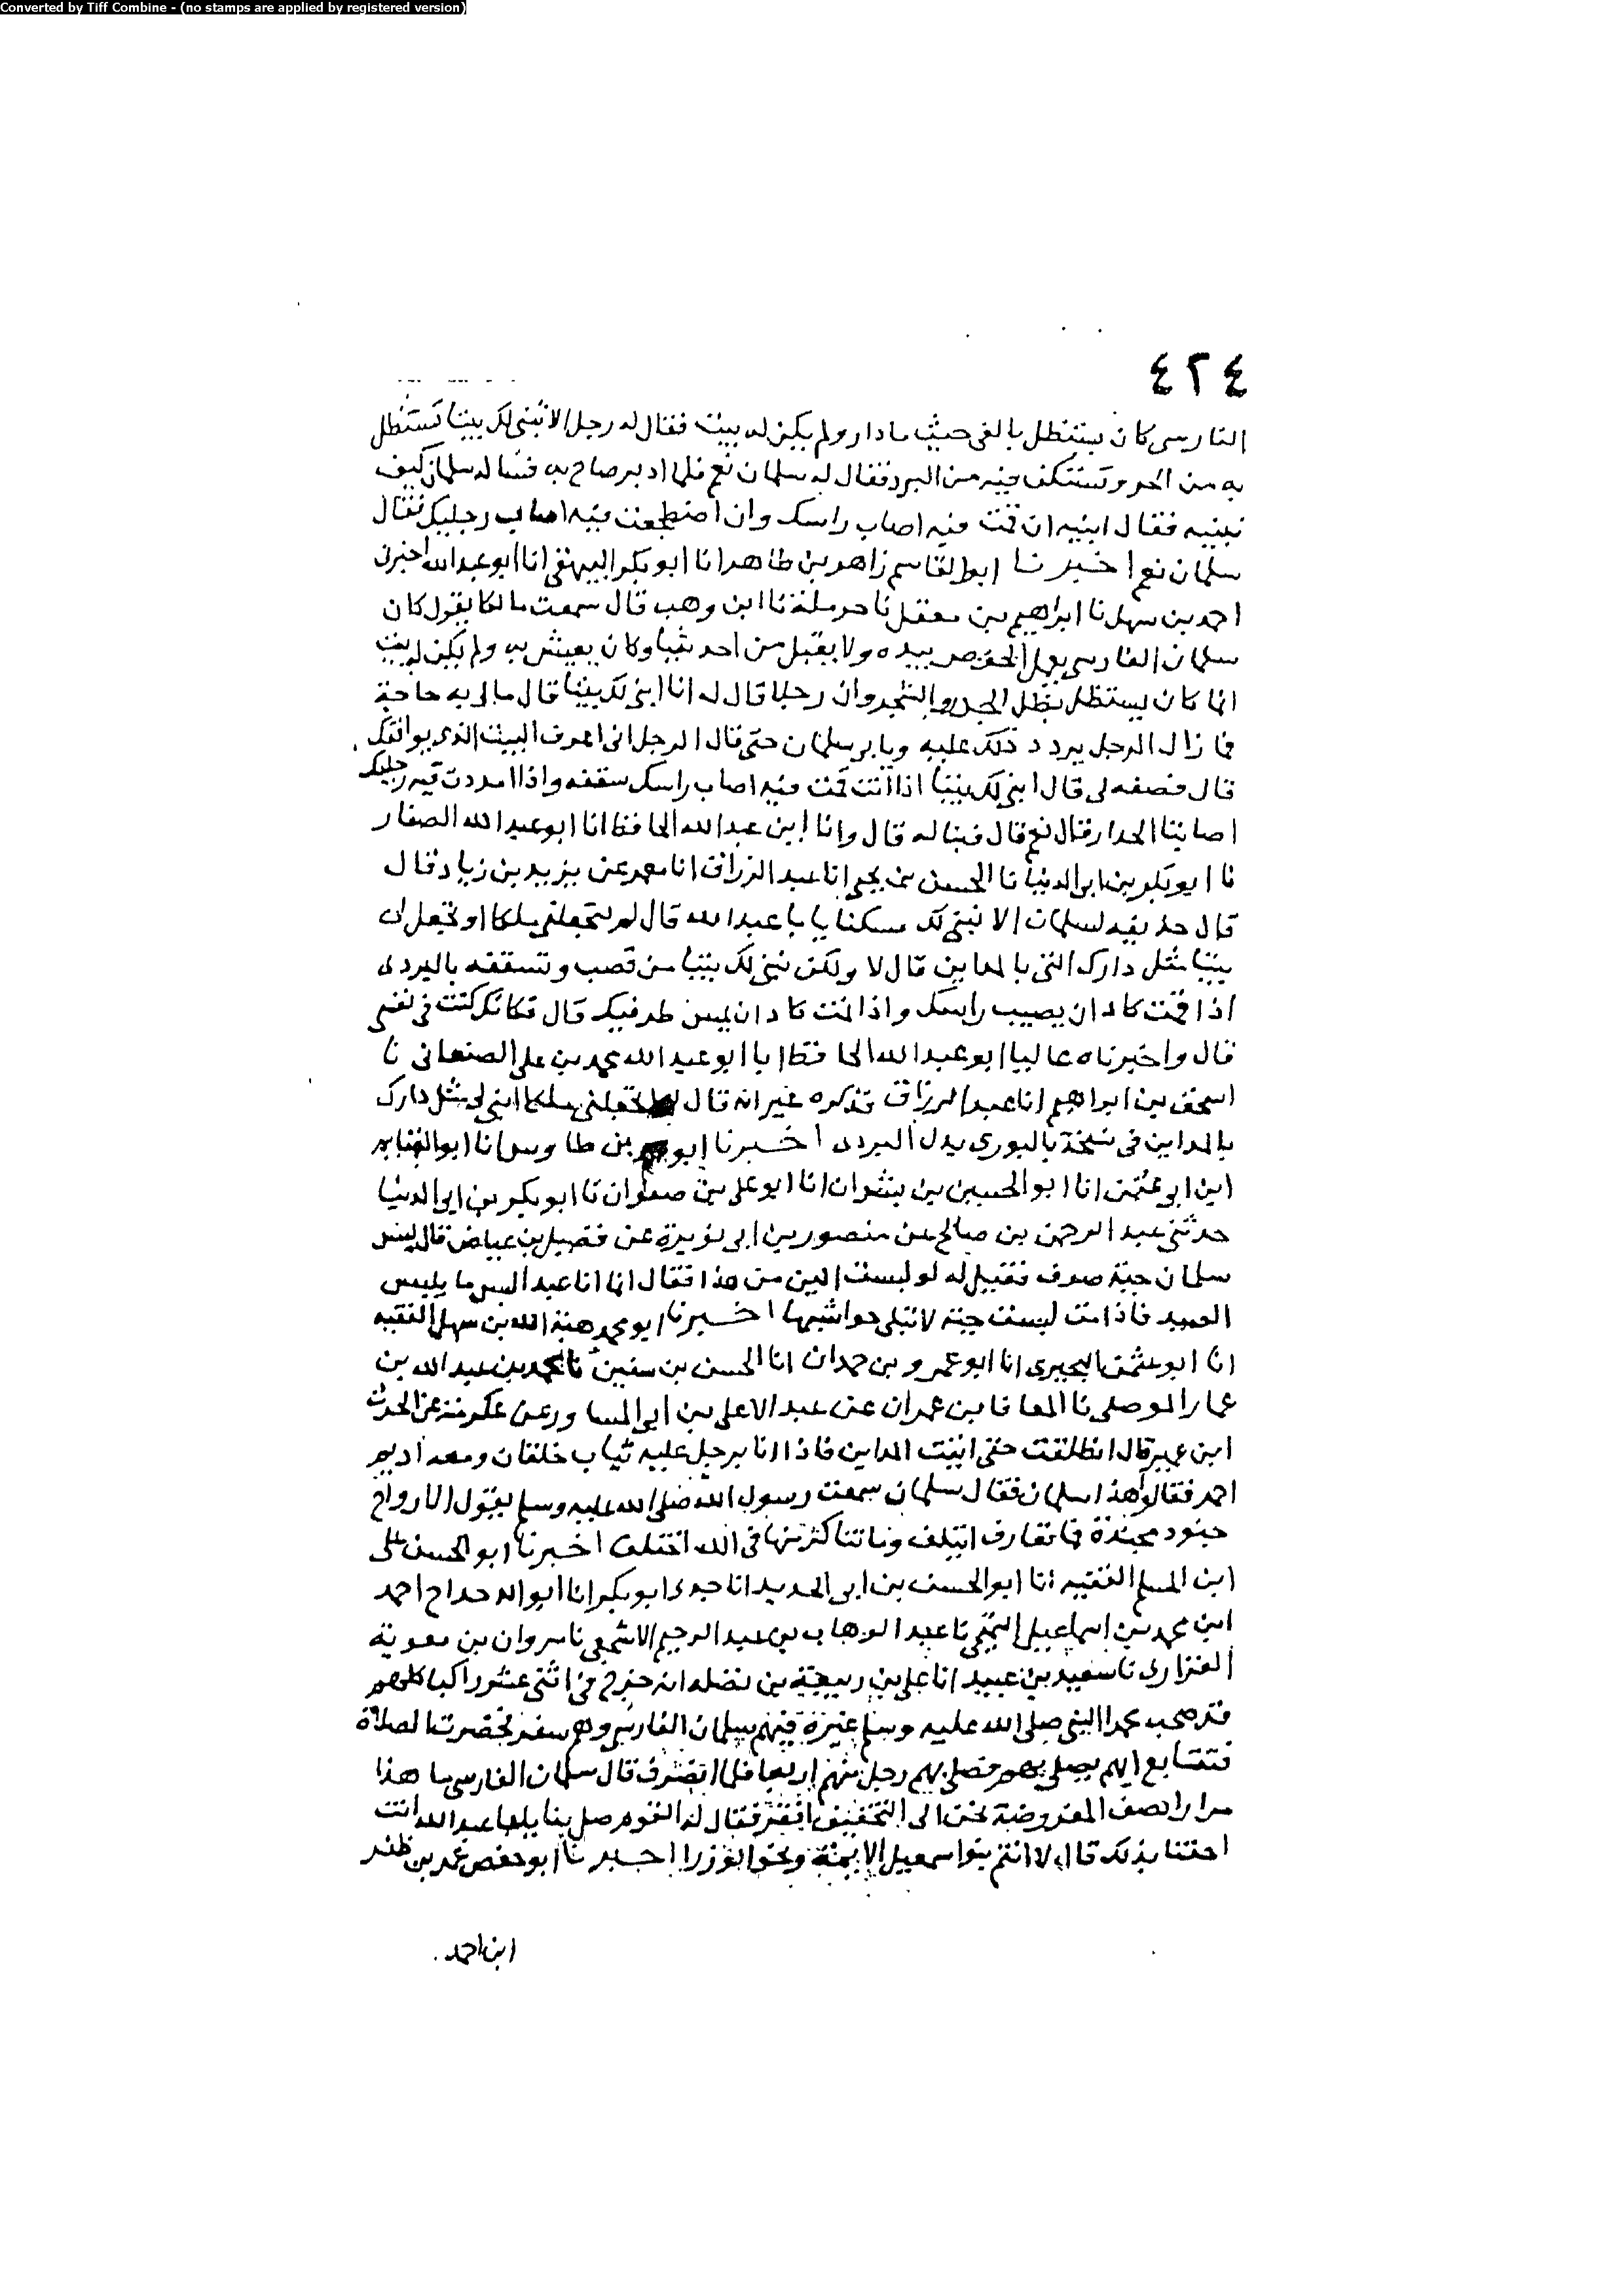 Converted by Tiff Combine - (no stamps are applied by registered version)
٤٢٤
الفارسى كان يستظل بالفى حيث ما دار ولم يكن له بيت فقال له رجل الا نبنى لك بيتا تستظل
به من الحر وتستكف فيه من البرد فقال له سلمان نعم فلما ادبر صاح به فساله سلمان كيف
تبنيه فقال ابنيه ان قمت فيه اصاب راسك وان اضطجعت فيه اصاب رجليك فقال
سلمان نعم اخبرنا ابو القاسم زاهر بن طاهر انا ابو بكر البيهقى انا ابو عبد الله اخبرنى
احمد بن سهل نا ابراهيم بن معقل نا حرملة نا ابن وهب قال سمعت مالكا يقول كان
سلمان الفارسى يعمل الخوص بيده ولا يقبل من احد شيا وكان يعيش به ولم يكن له بيت
انما كان يستظل بظل الجدر والشجر وان رجلا قال له انا ابنى لك بيتا قال مالى به حاجة
فما زال الرجل يردد ذلك عليه ويابى سلمان حتى قال الرجل انى اعرف البيت الذى يوافقك
قال فصفه لى قال ابنى لك بيتا اذا انت قمت فيه اصاب راسك سقفه واذا امددت فيه رجليك
اصابتا الجدار قال نعم قال فبنا له قال وانا ابن عبد الله الحافظ انا ابو عبد الله الصفار
نا ابو بكر بن ابى الدنيا نا الحسن بن يحيى انا عبد الرزاق انا معمر عن يزيد بن زياد قال
قال حذيفه لسلمان الا نبنى لك مسكنا يا با عبد الله قال لم لتجعلنى ملكا او تجعل لى
بيتا مثل دارك التى بالمداين قال لا ولكن نبنى لك بيتا من قصب ونسقفه بالبردى
اذا قمت كاد ان يصيب راسك واذا نمت كاد ان يمس طرفيك قال فكانك كنت فى نفسى
قال واخبرناه عاليا ابو عبد الله الحافظ انا ابو عبد الله محمد بن على الصنعانى نا
اسحق بن ابراهيم انا عبد الرزاق فذكره غير انه قال تجعلنى ملكا ابنى لى مثل دارك
بالمداين فى نسخة بالبورى بدل البردى اخبرنا ابو بن طاوس انا ابو الغنايم
ابن ابى عثمن انا ابو الحسين بن بشران انا ابو على بن صفوان نا ابو بكر بن ابى الدنيا
حدثنى عبد الرحمن بن صالح عن منصور بن ابى نويرة عن فضيل بن عياض قال لبس
سلمان جبة صوف فقيل له لو لبست الين من هذا فقال انما انا عبد البس ما يلبس
العبيد فاذا مت لبست جبة لا تبلى حواشيها اخبرنا ابو محمد هبة الله بن سهل الفقيه
انا ابو عثمن البحيرى انا ابو عمرو بن حمدان انا الحسن بن سفين نا محمد بن عبد الله بن
عمار الموصلى نا المعافا بن عمران عن عبد الاعلى بن ابى المساور عن عكرمة عن الحرث
ابن عميرة قال انطلقت حتى اتيت المداين فاذا انا برجل عليه ثياب خلقان ومعه اديم
احمر فقالوا هذا سلمان فقال سلمان سمعت رسول الله صلى الله عليه وسلم يقول الارواح
جنود مجندة فما تعارف ايتلف وما تناكر منها فى الله اختلف اخبرنا ابو الحسن على
ابن المسلم الفقيه انا ابو الحسن بن ابى الحديد انا جدى ابو بكر انا ابو الدحداح احمد
ابن محمد بن اسماعيل التميمى نا عبد الوهاب بن عبد الرحيم الاشجعى نا مروان بن معوية
الفزارى نا سعيد بن عبيد انا على بن ربيعة بن نضله انه خرج فى اثنى عشر راكبا كلهم
قد صحب محمدا النبى صلى الله عليه وسلم غيره فيهم سلمان الفارسى وهم سفر فحضرت الصلاة
فتتابع ايهم يصلى بهم فصلى بهم رجل منهم اربعا فلما انصرف قال سلمان الفارسى ما هذا
مرارا نصف المفروضة نحن الى التخفيف افقر فقال له القوم صل بنا يابا عبد الله انت
احقنا بذلك قال لا انتم بنو اسمعيل الايمة ونحن الوزرا اخبرنا ابو حفص عمر بن ظفر
ابن احمد